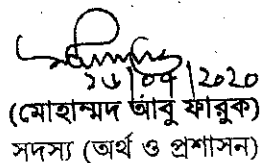 ২৬/০৭/২০২০
(মোহাম্মদ আবু ফারুক)
সদস্য (অর্থ ও প্রশাসন)